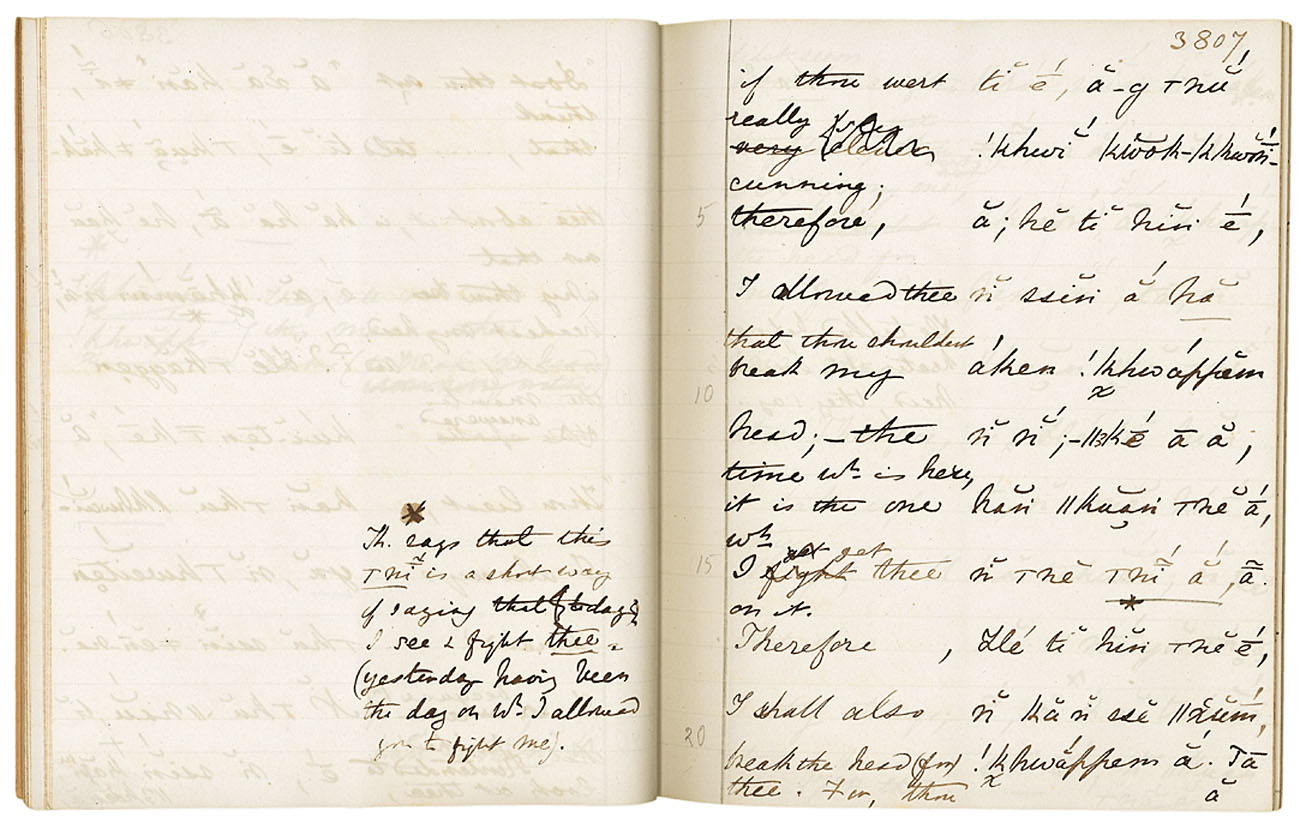 Th. says that this
т nĭ is a short way
of saying that today
I see & fight thee =
(yesterday having been
the day on wh. I allowed
you to fight me).
3807
if thou wert tĭ é, ă-g т nŭ
really
very clever !khwĭ
cunning;
5 therefore, ă; hĕ tĭ hĭn é,
I allowed thee ň ssĭn ă hă
that thou shouldst
break my áken !khwáppĕm
10 x
head; – the ň ň; – ā ă,
time wh. is here,
it is the one hăn ||kuăn т nĕ á,
wh.
15 I fight thee ň т nĕ т nĭ á, ā.
on it.
Therefore , tĭ hĭn т nĕ é,
I shall also ň kă ň ssĕ
20 break the head (for) !khwáppem á. Tā
x
thee. For, thou ă